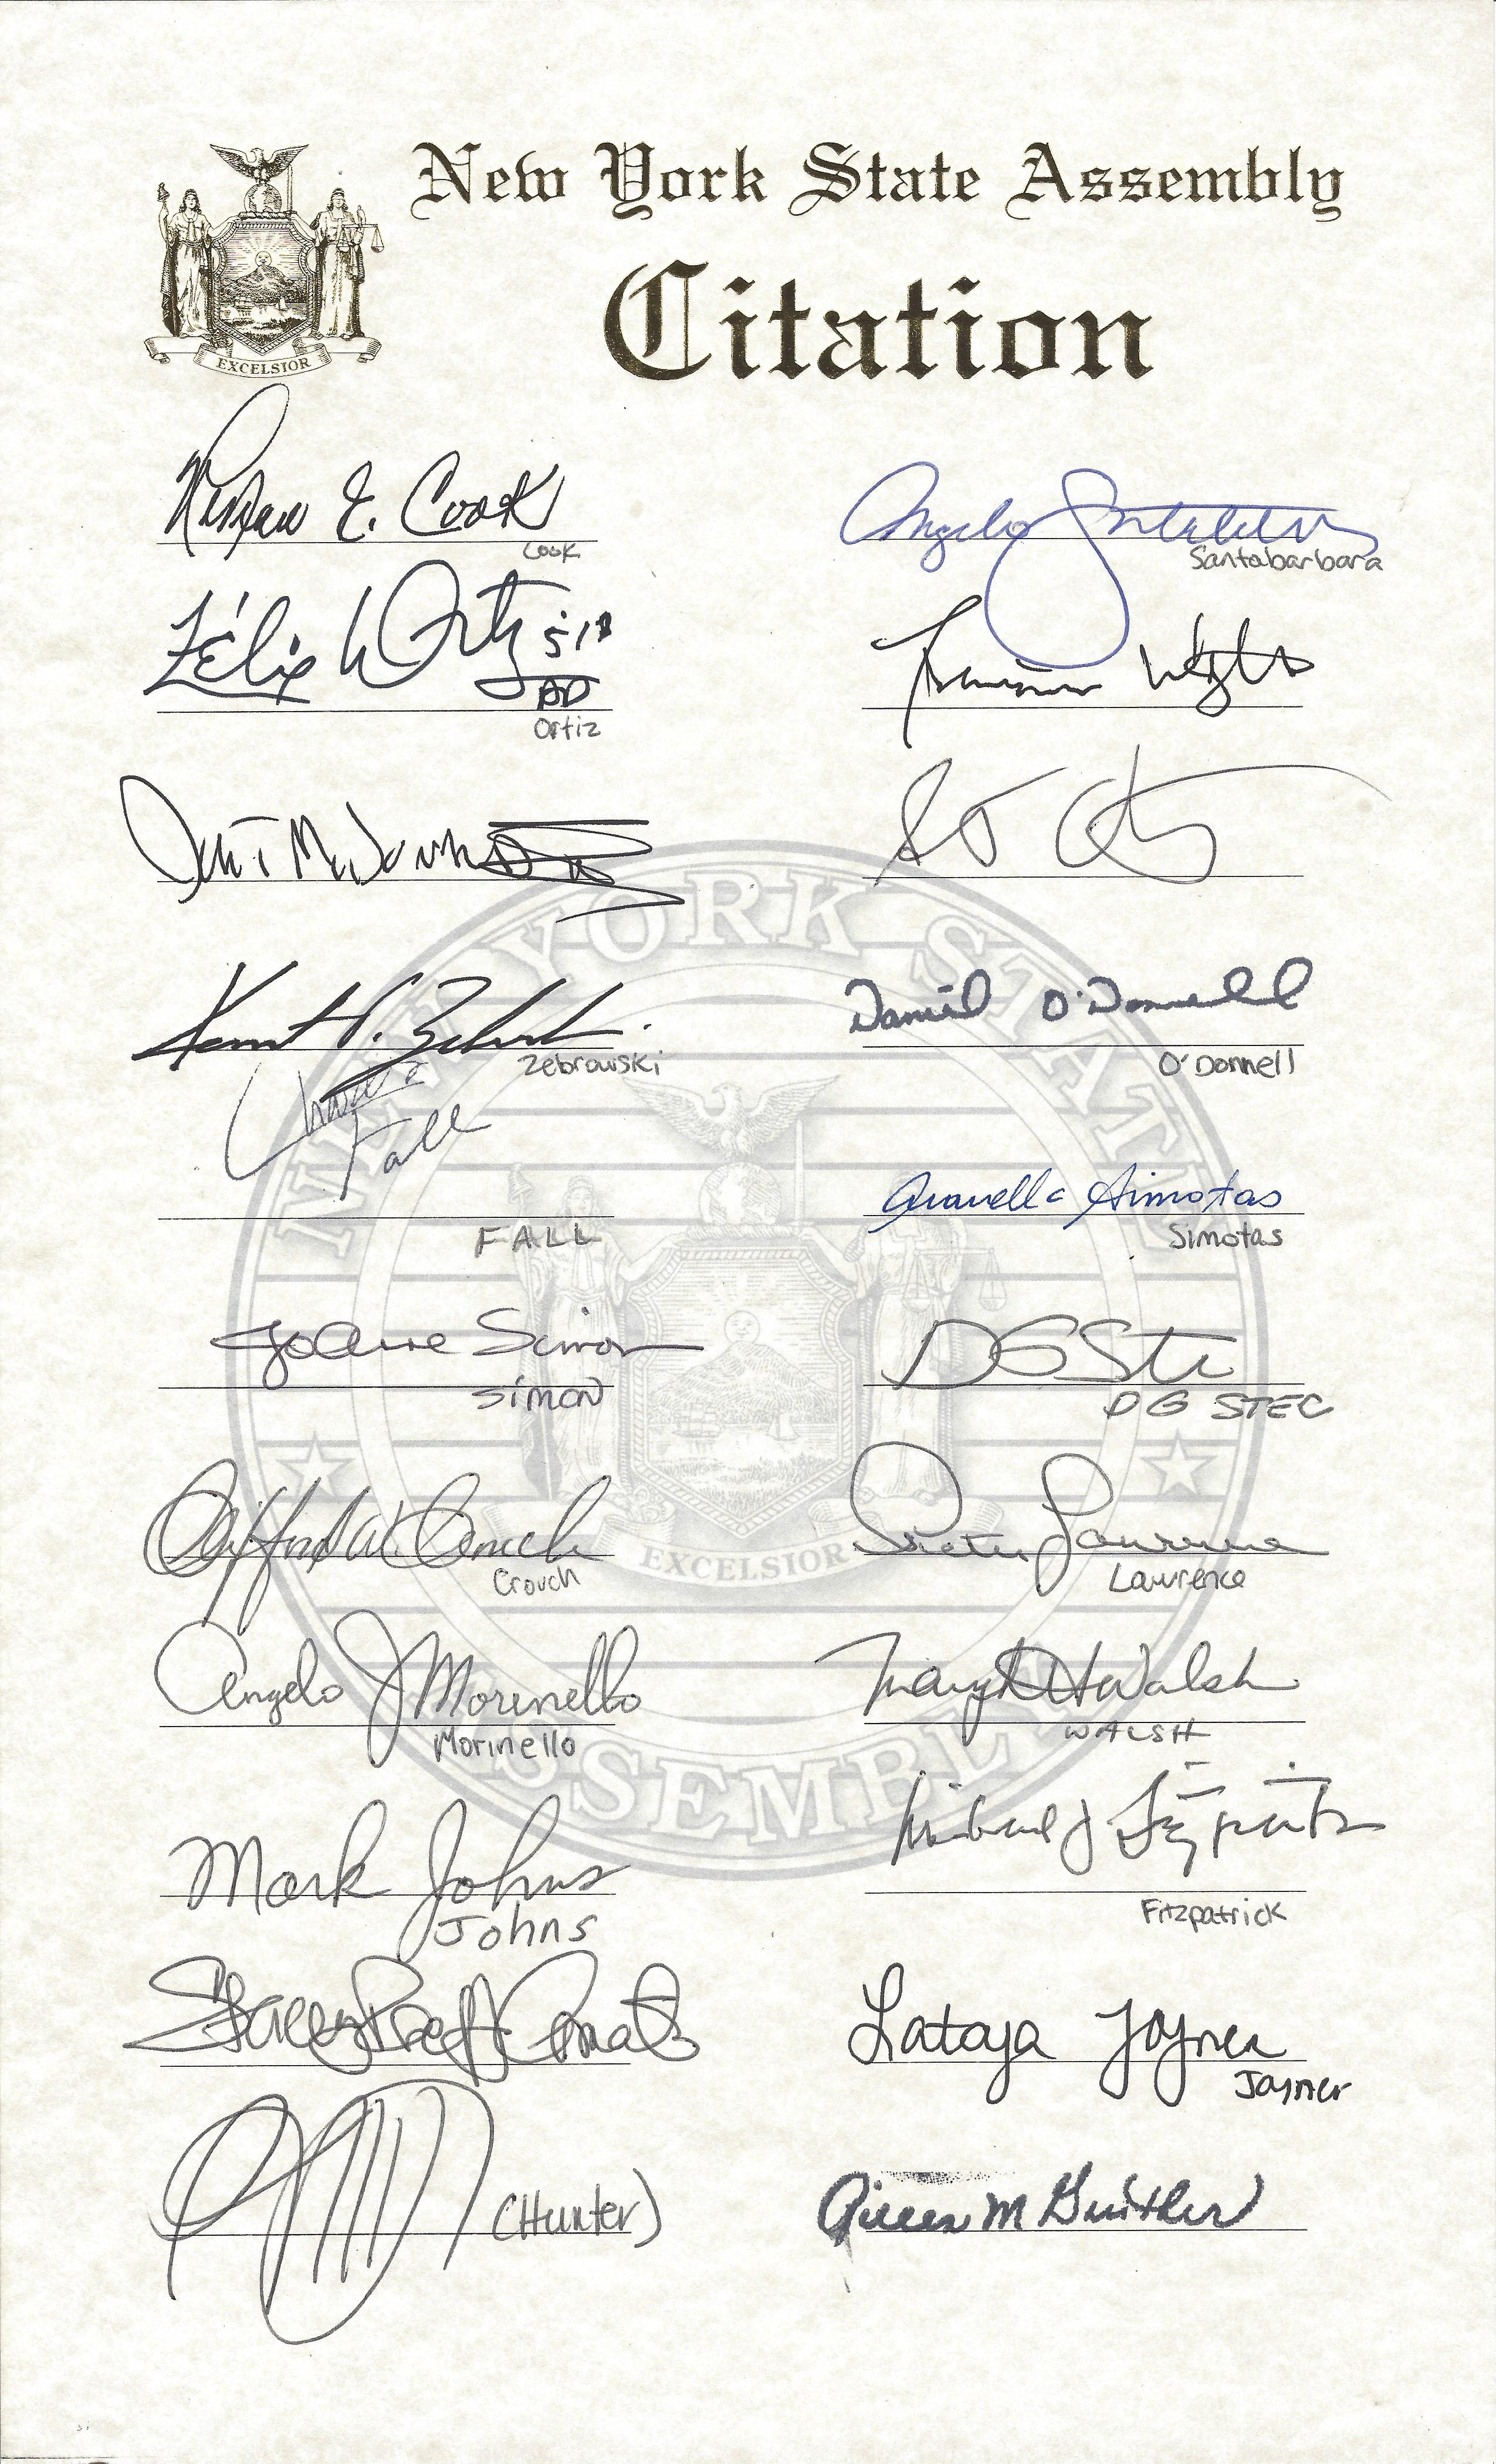 New York State Assembly
EXCELSIOR
Citation
E. Cook
Cook
Angelo
Santabarbara
Félix W Ortiz 51
AD
Ortiz
Zebrowski
Daniel O'Donnell
O'Donnell
Charles
Fall
FALL
Aravella Simotas
Simotas
Jo Anne Simon
Simon
DG Stec
DG STEC
Clifford W. Crouch
Crouch
Peter Lawrence
Lawrence
Angelo J Morinello
Morinello
Mary Walsh
WALSH
Mark Johns
Johns
Michael J Fitzpatrick
Fitzpatrick
Lataya Joyner
Joyner
(Hunter)
Aileen M Gunther
NEW YORK STATE
EXCELSIOR
ASSEMBLY